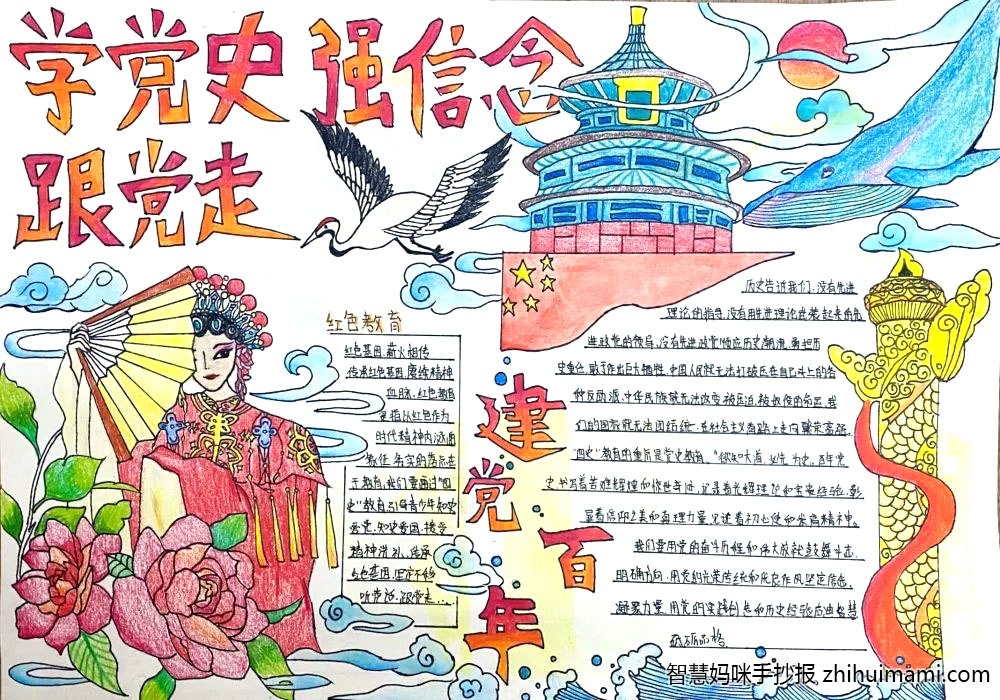 学党史 强信念
跟党走
红色教育
红色基因，薪火相传
传承红色基因 赓续精神
血脉，红色教育
是指以红色作为
时代精神内涵
教育，我们要通过"四
史"教育，引导青少年知史
爱党，知史爱国，接受
精神洗礼，传承
红色基因，坚定不移
听党话、跟党走...
建党百年
历史告诉我们，没有先进
理论的指导，没有用先进理论武装起来的先
进政党的领导，没有先进政党顺应历史潮流、勇担历
史重任、敢于作出巨大牺牲，中国人民就无法打破压在自己头上的各
种反动派，中华民族就无法改变被压迫、被奴役的命运，我
们的国家就无法团结统一、在社会主义道路上走向繁荣富强。
"四史"教育的重点是党史教育。"欲知大道，必先为史，百年党
史书写着苦难辉煌
我们要用党的奋斗历程和伟大成就鼓舞斗志，
明确方向，用党的光荣传统和优良作风坚定信念、
凝聚力量，用党的实践创造和历史经验启迪智慧
砥砺品格
智慧妈咪手抄报 zhihuimami.com